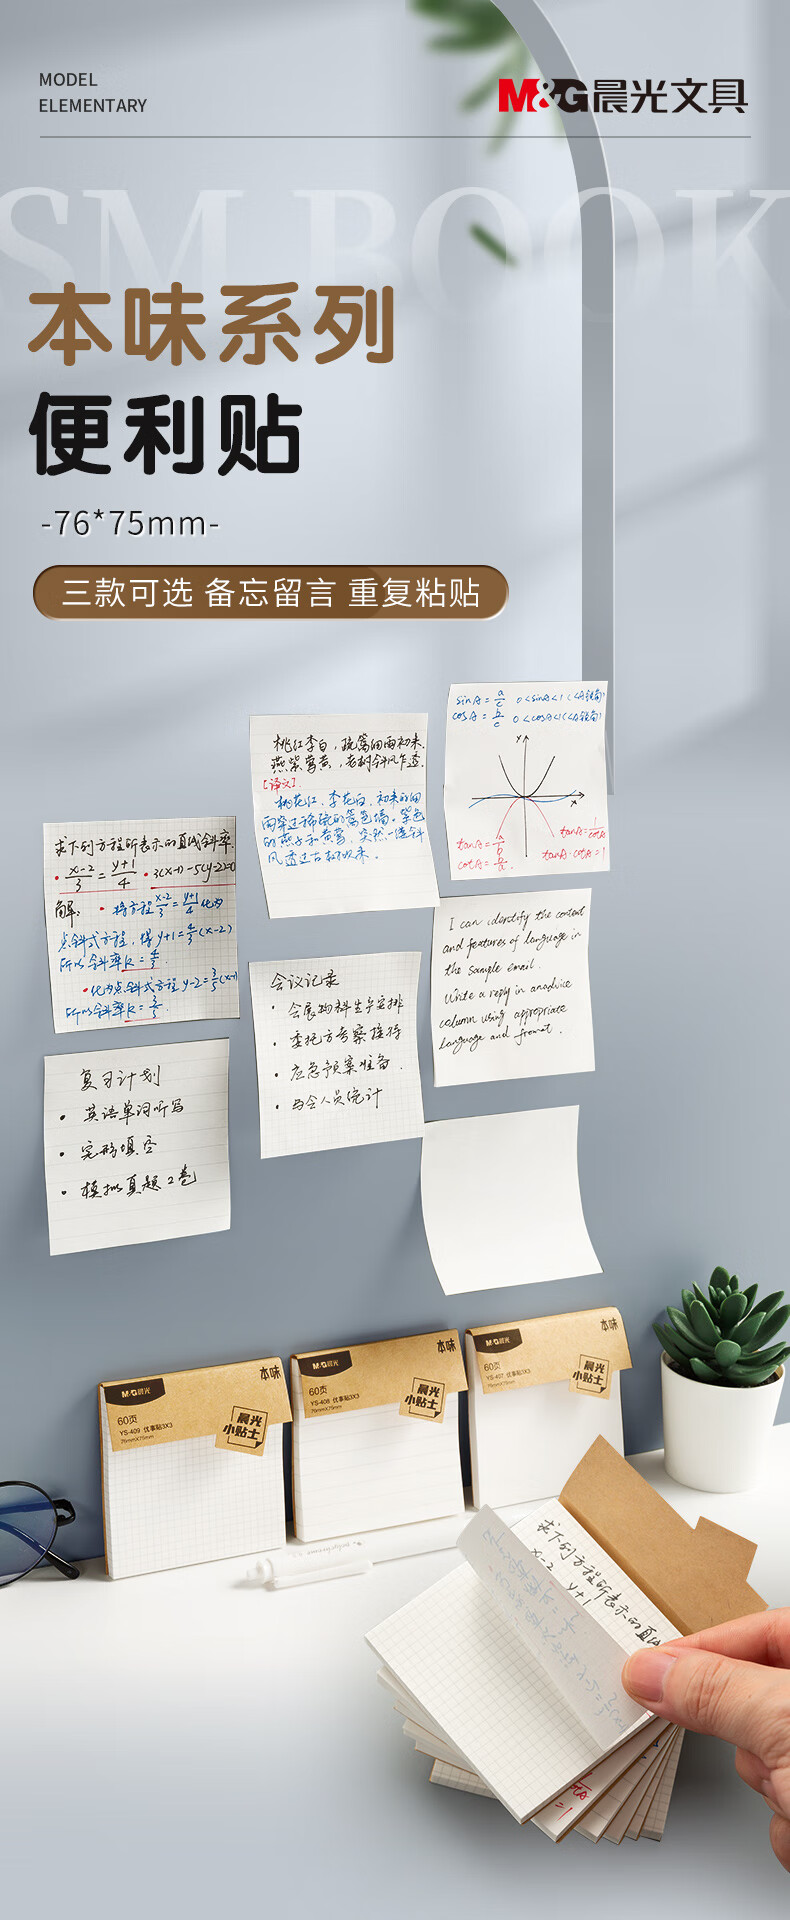 MODEL
ELEMENTARY
M&G晨光文具
SM BOOK
本味系列
便利贴
-76*75mm-
三款可选 备忘留言 重复粘贴
sinA=a/c 0<sinA<1(∠A锐角)
cosA=b/c 0<cosA<1(∠A锐角)
y
x
tanA=a/b
cotA=b/a
tanA=1/cotA
tanA·cotA=1
桃红李白,疏篱细雨初来.
燕紫莺黄,老树斜风乍透.
[译文].
桃花红,李花白,初来的细
雨穿过稀疏的篱笆墙。紫色
的燕子和黄莺,突然一缕斜
风透过古树吹来.
求下列方程所表示的直线斜率.
· x-2/3 = y+1/4 · 3(x-1)-5(y-2)=0
解: · 将方程x-2/3=y+1/4化为
点斜式方程,得y+1=4/3(x-2)
所以斜率k=4/3.
·化为点斜式方程y-2=3/5(x-1)
所以斜率k=3/5.
I can identify the context
and features of language in
the sample email.
Write a reply in anadvice
column using appropriate
language and fromat.
会议记录
· 会展物料生产安排
· 委托方考察接待
· 应急预案准备.
· 与会人员统计
复习计划
· 英语单词听写
· 完形填空
· 模拟真题2卷
M&G晨光
本味
60页
YS-409 优事贴3X3
76mmX75mm
晨光
小贴士
M&G晨光
本味
60页
YS-408 优事贴3X3
76mmX75mm
晨光
小贴士
M&G晨光
本味
60页
YS-407 优事贴3X3
76mmX75mm
晨光
小贴士
求下列方程所表示的直线
x-2
y+1
=1